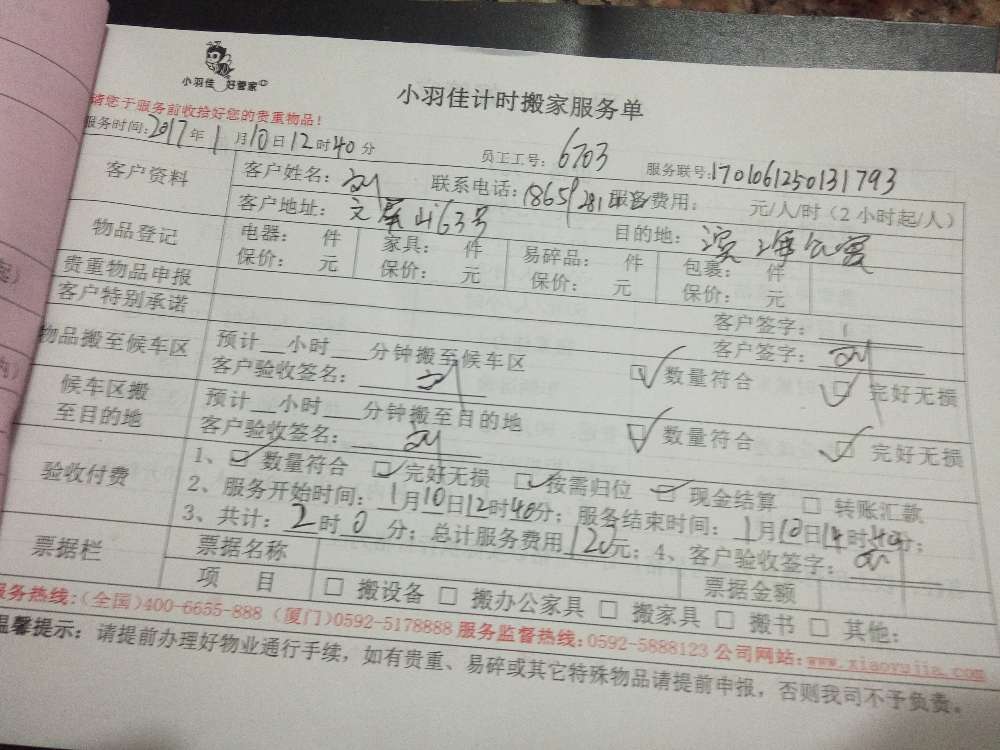 小羽佳 好管家
小羽佳计时搬家服务单
请您于服务前收拾好您的贵重物品！
服务时间：2017年1月10日12时40分 员工工号：6703 服务联号：1701061250131793
客户资料 客户姓名： 联系电话： 服务费用： 元/人/时（2小时起/人）
客户地址：文屏山63号 目的地：滨海公寓
物品登记 电器： 件 家具： 件 易碎品： 件 包裹： 件
保价： 元 保价： 元 保价： 元 保价： 元
贵重物品申报 客户签字：
客户特别承诺 客户签字：
物品搬至候车区 预计__小时___分钟搬至候车区
客户验收签名： 数量符合 完好无损
候车区搬至目的地 预计__小时___分钟搬至目的地
客户验收签名： 数量符合 完好无损
验收付费 1、数量符合 完好无损 按需归位 现金结算 转账汇款
2、服务开始时间：1月10日12时40分；服务结束时间：1月10日14时40分；
3、共计：2时0分；总计服务费用120元；4、客户验收签字：
票据栏 票据名称 票据金额
项 目 搬设备 搬办公家具 搬家具 搬书 其他：
服务热线：（全国）400-6655-888（厦门）0592-5178888 服务监督热线：0592-5888123 公司网站：www.xiaoyujia.com
温馨提示：请提前办理好物业通行手续，如有贵重、易碎或其它特殊物品请提前申报，否则我司不予负责。